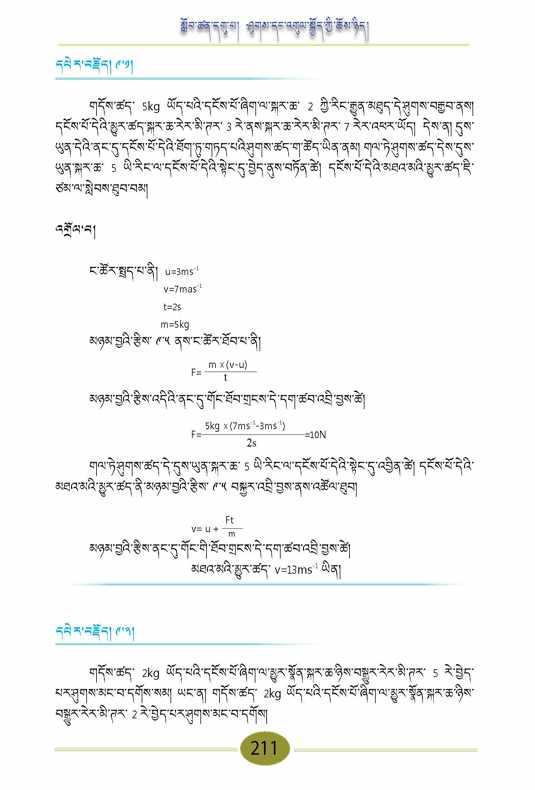 སློབ་ཚན་དགུ་པ། ཤུགས་དང་འགུལ་སྐྱོད་ཀྱི་ཆོས་ཉིད།
དཔེར་བརྗོད། ༩་༡།
གདོས་ཚད་ 5kg ཡོད་པའི་དངོས་པོ་ཞིག་ལ་སྐར་ཆ་ 2 ཀྱི་རིང་རྒྱུན་མཐུད་དེ་ཤུགས་བརྒྱབ་ནས།
དངོས་པོ་དེའི་མྱུར་ཚད་སྐར་ཆ་རེར་མི་ཊར་ 3 རེ་ནས་སྐར་ཆ་རེར་མི་ཊར་ 7 རེར་འཕར་ཡོད། དེས་ན། དུས་
ཡུན་དེའི་ནང་དུ་དངོས་པོ་དེའི་ཐོག་ཏུ་གཏད་པའི་ཤུགས་ཚད་ག་ཚོད་ཡིན་ནམ། གལ་ཏེ་ཤུགས་ཚད་དེས་དུས་
ཡུན་སྐར་ཆ་ 5 ཡི་རིང་ལ་དངོས་པོ་དེའི་སྟེང་དུ་བྱེད་ནུས་བཏོན་ཚེ། དངོས་པོ་དེའི་མཐའ་མའི་མྱུར་ཚད་ཇི་
ཙམ་ལ་སླེབས་ཐུབ་བམ།
འགྲོལ་བ།
ང་ཚོར་སྤྲད་པ་ནི། u=3ms⁻¹
v=7mas⁻¹
t=2s
m=5kg
མཉམ་བྱའི་རྩིས་ ༩་༥ ནས་ང་ཚོར་ཐོབ་པ་ནི།
F= m x (v-u)
t
མཉམ་བྱའི་རྩིས་འདིའི་ནང་དུ་གོང་ཐོབ་གྲངས་དེ་དག་ཚབ་འབྲི་བྱས་ཚེ།
F= 5kg x (7ms⁻¹-3ms⁻¹) =10N
2s
གལ་ཏེ་ཤུགས་ཚད་དེ་དུས་ཡུན་སྐར་ཆ་ 5 ཡི་རིང་ལ་དངོས་པོ་དེའི་སྟེང་དུ་འབྱིན་ཚེ། དངོས་པོ་དེའི་
མཐའ་མའི་མྱུར་ཚད་ནི་མཉམ་བྱའི་རྩིས་ ༩་༥ བསྐྱར་འབྲི་བྱས་ནས་འཚོལ་ཐུབ།
v= u + Ft
m
མཉམ་བྱའི་རྩིས་ནང་དུ་གོང་གི་ཐོབ་གྲངས་དེ་དག་ཚབ་འབྲི་བྱས་ཚེ།
མཐའ་མའི་མྱུར་ཚད་ v=13ms⁻¹ ཡིན།
དཔེར་བརྗོད། ༩་༢།
གདོས་ཚད་ 2kg ཡོད་པའི་དངོས་པོ་ཞིག་ལ་མྱུར་སྣོན་སྐར་ཆ་ཉིས་བསྒྱུར་རེར་མི་ཊར་ 5 རེ་བྱེད་
པར་ཤུགས་མང་བ་དགོས་སམ། ཡང་ན། གདོས་ཚད་ 2kg ཡོད་པའི་དངོས་པོ་ཞིག་ལ་མྱུར་སྣོན་སྐར་ཆ་ཉིས་
བསྒྱུར་རེར་མི་ཊར་ 2 རེ་བྱེད་པར་ཤུགས་མང་བ་དགོས།
211